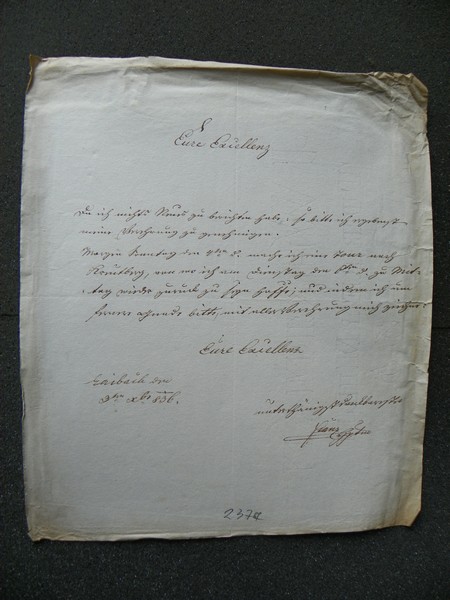 Eure Excellenz
Da ich nichts Neues zu berichten habe, so bitte ich ergebenst
meine Verehrung zu genehmigen.
Morgen Montag den 4ten d. mache ich eine Tour nach
von wo ich am Dienstag den 5ten d. zu Mit-
tag wieder zurück zu seyn hoffe; und indem ich um
fernere Gnade bitte, mit aller Verehrung mich zeichne
Eure Excellenz
Laibach den
3ten Xbr 836.
unterthänigst
Franz
237